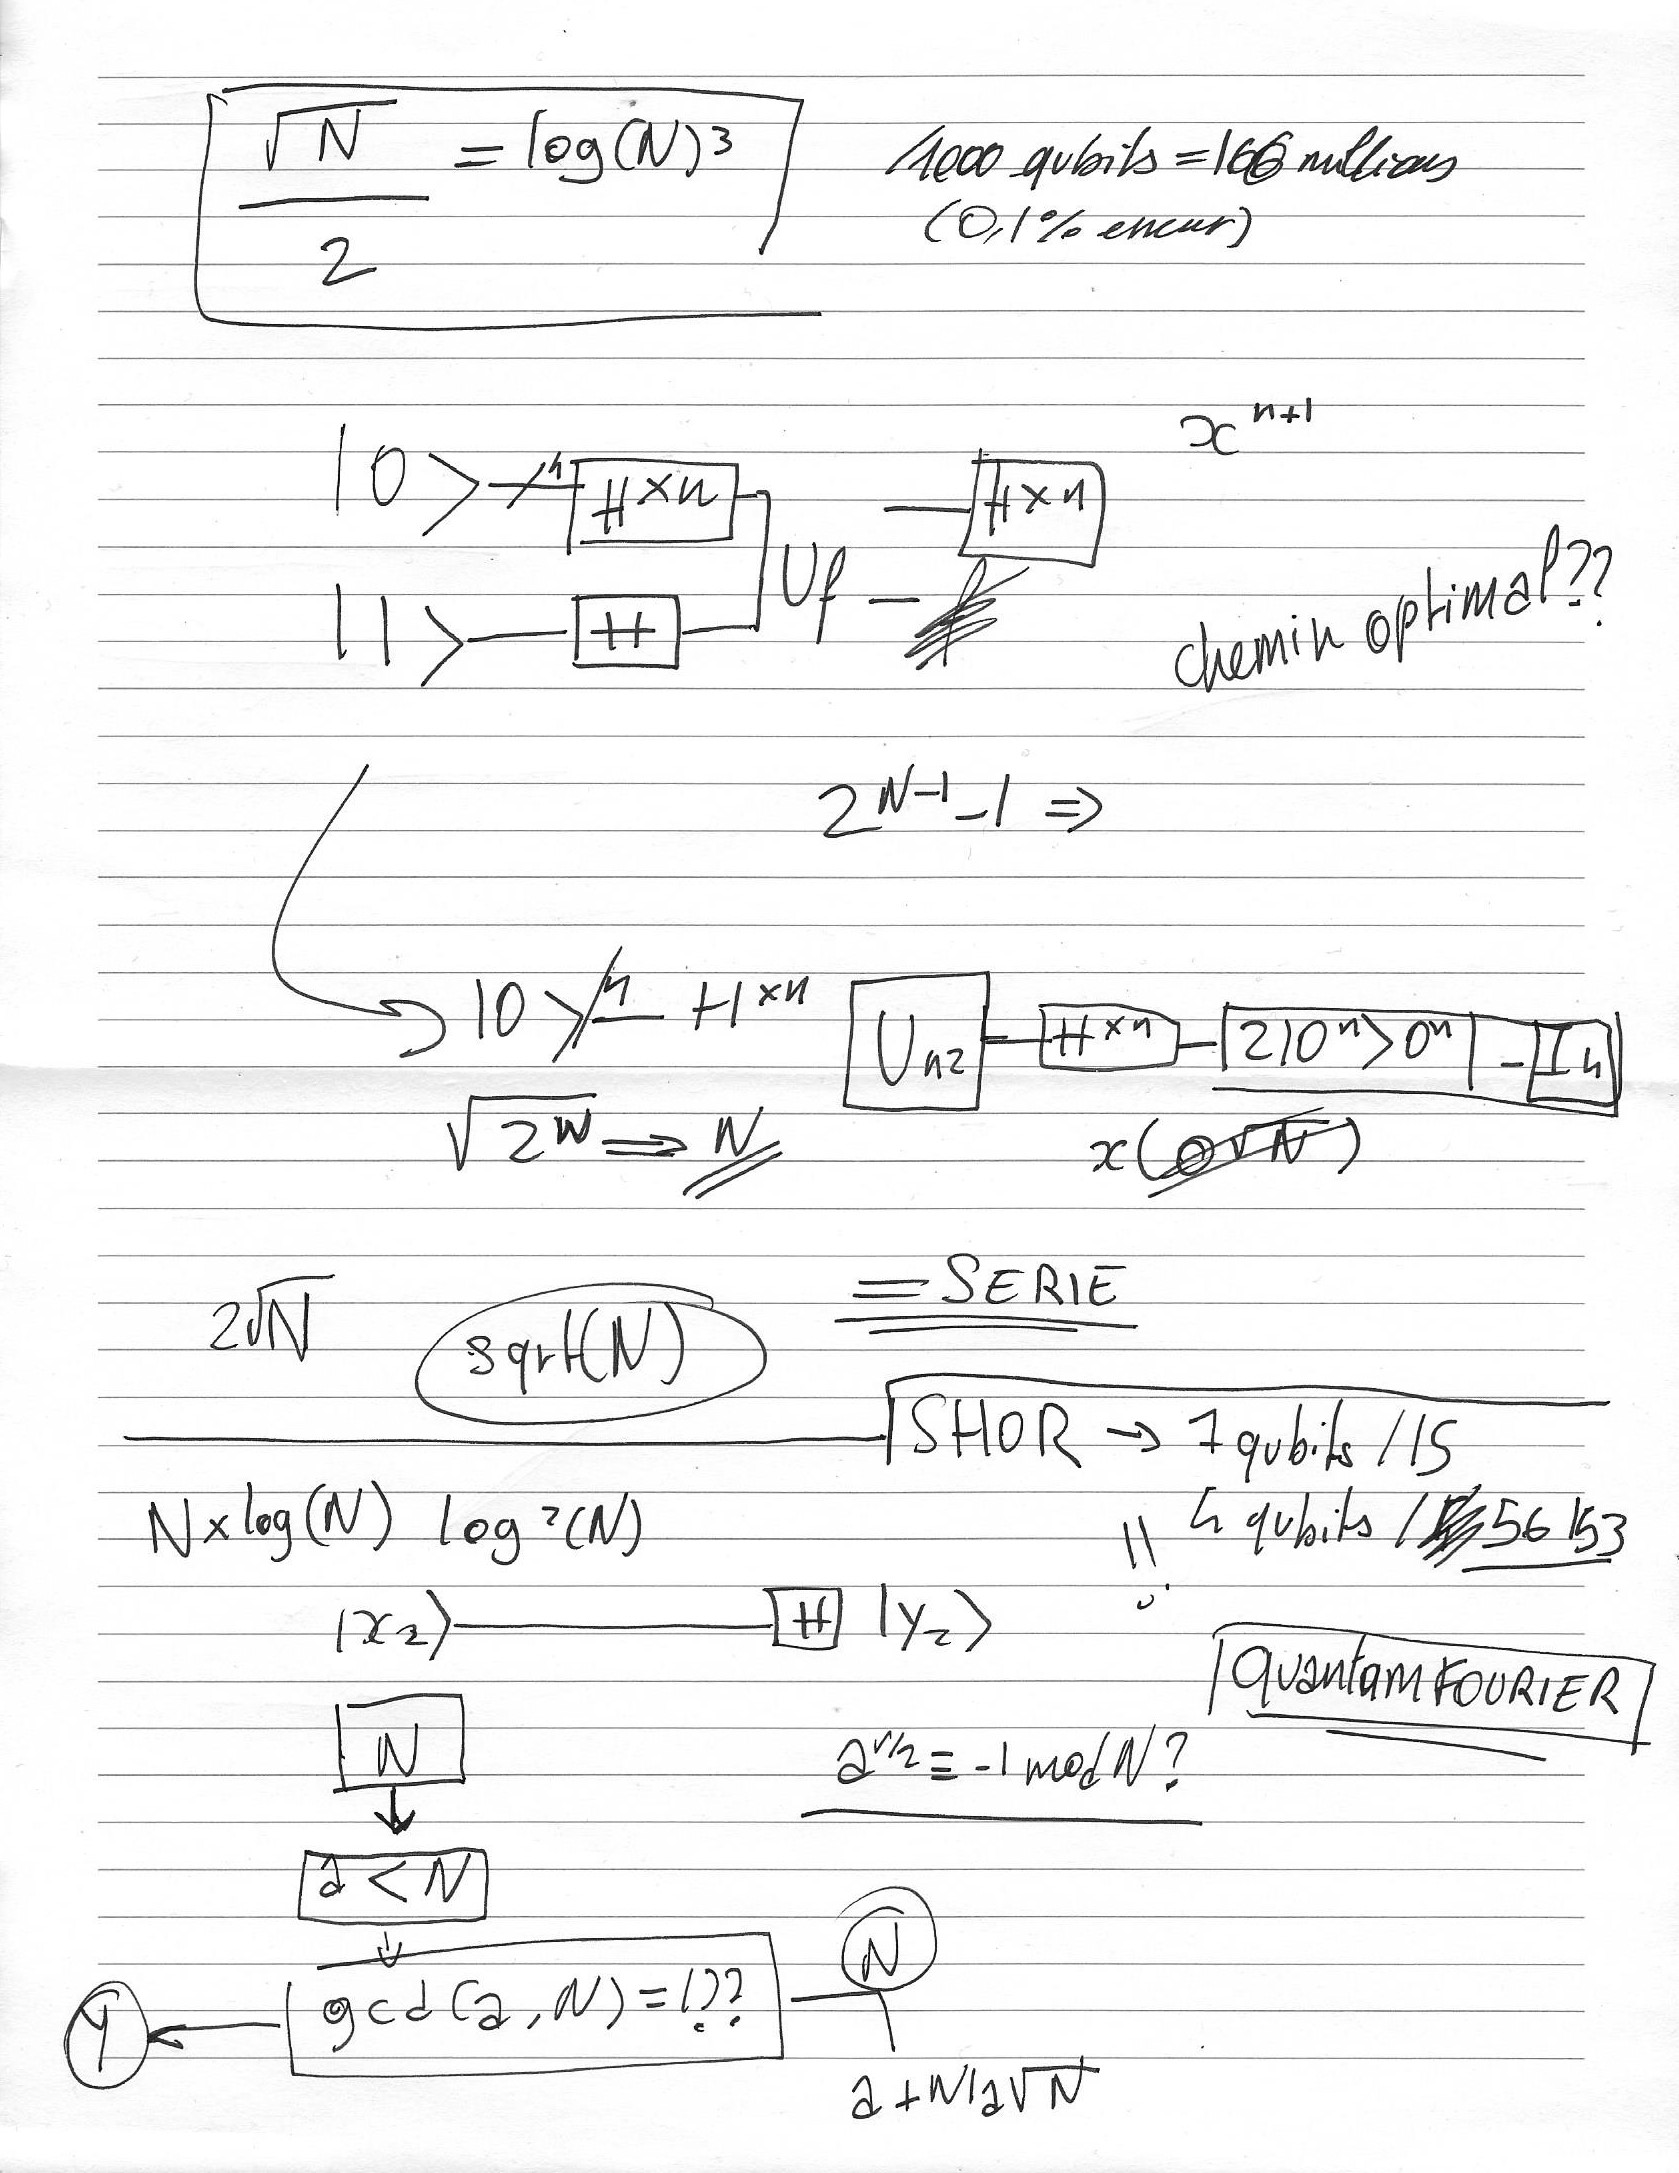 √N / 2 = log(N)3
1000 qubits = 166 millions
(0,1% erreur)
x^n+1
|0> n H×n H×n
Uf
|1> H
chemin optimal??
2^N-1 -1 =>
|0> n H×n Un2 H×n 2|0^n>0^n| - In
√2^N => N x( √N)
= SERIE
2√N sqrt(N)
SHOR → 7 qubits / 15
4 qubits / 56153
N×log(N) log²(N)
!!
|x2> H |y2>
quantam FOURIER
N
a^r/2 ≡ -1 mod N?
a < N
N
gcd(a, N) = 1??
Y
a+N/a√N